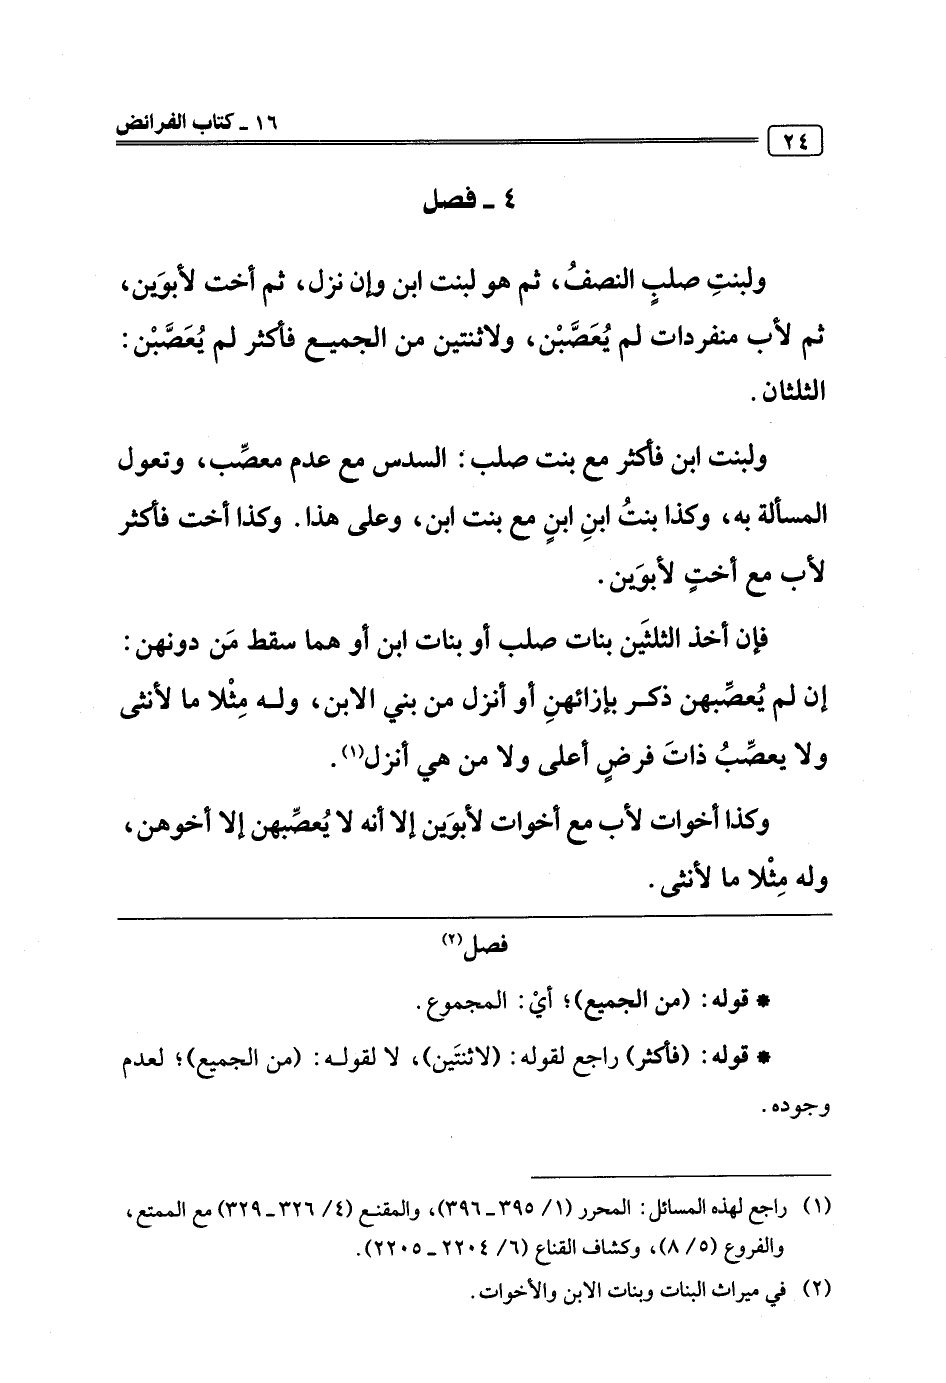 ١٦ ـ كتاب الفرائض
٢٤
٤ ـ فصل
ولبنتِ صلبٍ النصفُ، ثم هو لبنت ابن وإن نزل، ثم أخت لأبوَين،
ثم لأب منفردات لم يُعَصَّبْن، ولاثنتين من الجميع فأكثر لم يُعَصَّبْن:
الثلثان.
ولبنت ابن فأكثر مع بنت صلب: السدس مع عدم معصِّب، وتعول
المسألة به، وكذا بنتُ ابنِ ابنٍ مع بنت ابن، وعلى هذا. وكذا أخت فأكثر
لأب مع أختٍ لأبوَين.
فإن أخذ الثلثَين بنات صلب أو بنات ابن أو هما سقط مَن دونهن:
إن لم يُعصِّبهن ذكر بإزائهنِ أو أنزل من بني الابن، وله مِثْلا ما لأنثى
ولا يعصِّبُ ذاتَ فرضٍ أعلى ولا من هي أنزل(١).
وكذا أخوات لأب مع أخوات لأبوَين إلا أنه لا يُعصِّبهن إلا أخوهن،
وله مِثْلا ما لأنثى.
فصل(٢)
* قوله: (من الجميع)؛ أيْ: المجموع.
* قوله: (فأكثر) راجع لقوله: (لاثنتَين)، لا لقوله: (من الجميع)؛ لعدم
وجوده.
(١) راجع لهذه المسائل: المحرر (١/ ٣٩٥ ـ ٣٩٦)، والمقنع (٤/ ٣٢٦ ـ ٣٢٩) مع الممتع،
والفروع (٥/ ٨)، وكشاف القناع (٦/ ٢٢٠٤ ـ ٢٢٠٥).
(٢) في ميراث البنات وبنات الابن والأخوات.